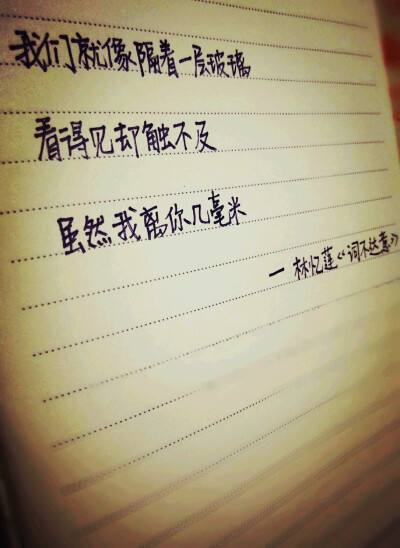 我们就像隔着一层玻璃
看得见却触不及
虽然我离你几毫米
— 林忆莲《词不达意》